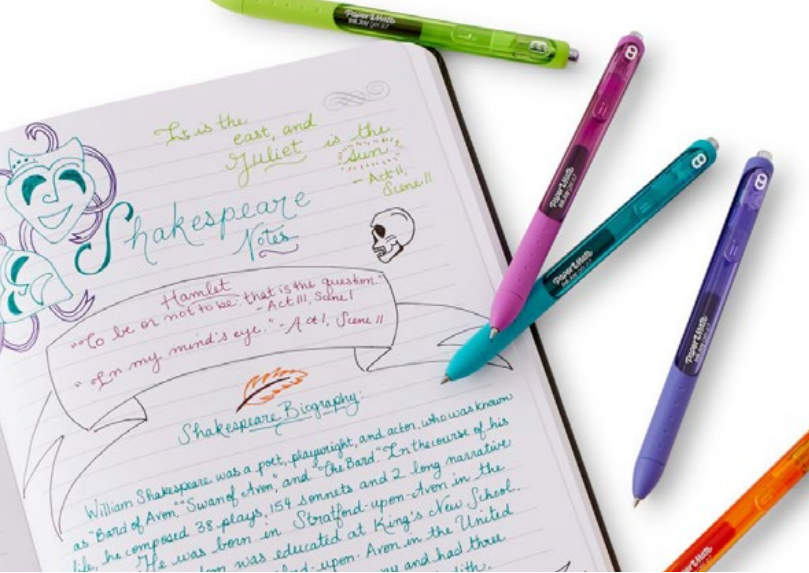 Is is the
east, and
Juliet is the
Sun
- Act II,
Scene II
Shakespeare
Notes
Hamlet
"To be or not to be: that is the question."
- Act III, Scene I
"In my mind's eye." - Act I, Scene II
Shakespeare Biography:
William Shakespeare was a poet, playwright, and actor, who was known
as "Bard of Avon," "Swan of Avon," and "The Bard." In the course of his
life, he composed 38 plays, 154 sonnets and 2 long narrative
He was born in Stratford-upon-Avon in the
was educated at King's New School.
upon-Avon in the United
and had three
PaperMate
InkJoy Gel 0.7
PaperMate
InkJoy Gel 0.7
PaperMate
InkJoy Gel 0.7
PaperMate
InkJoy Gel 0.7
PaperMate